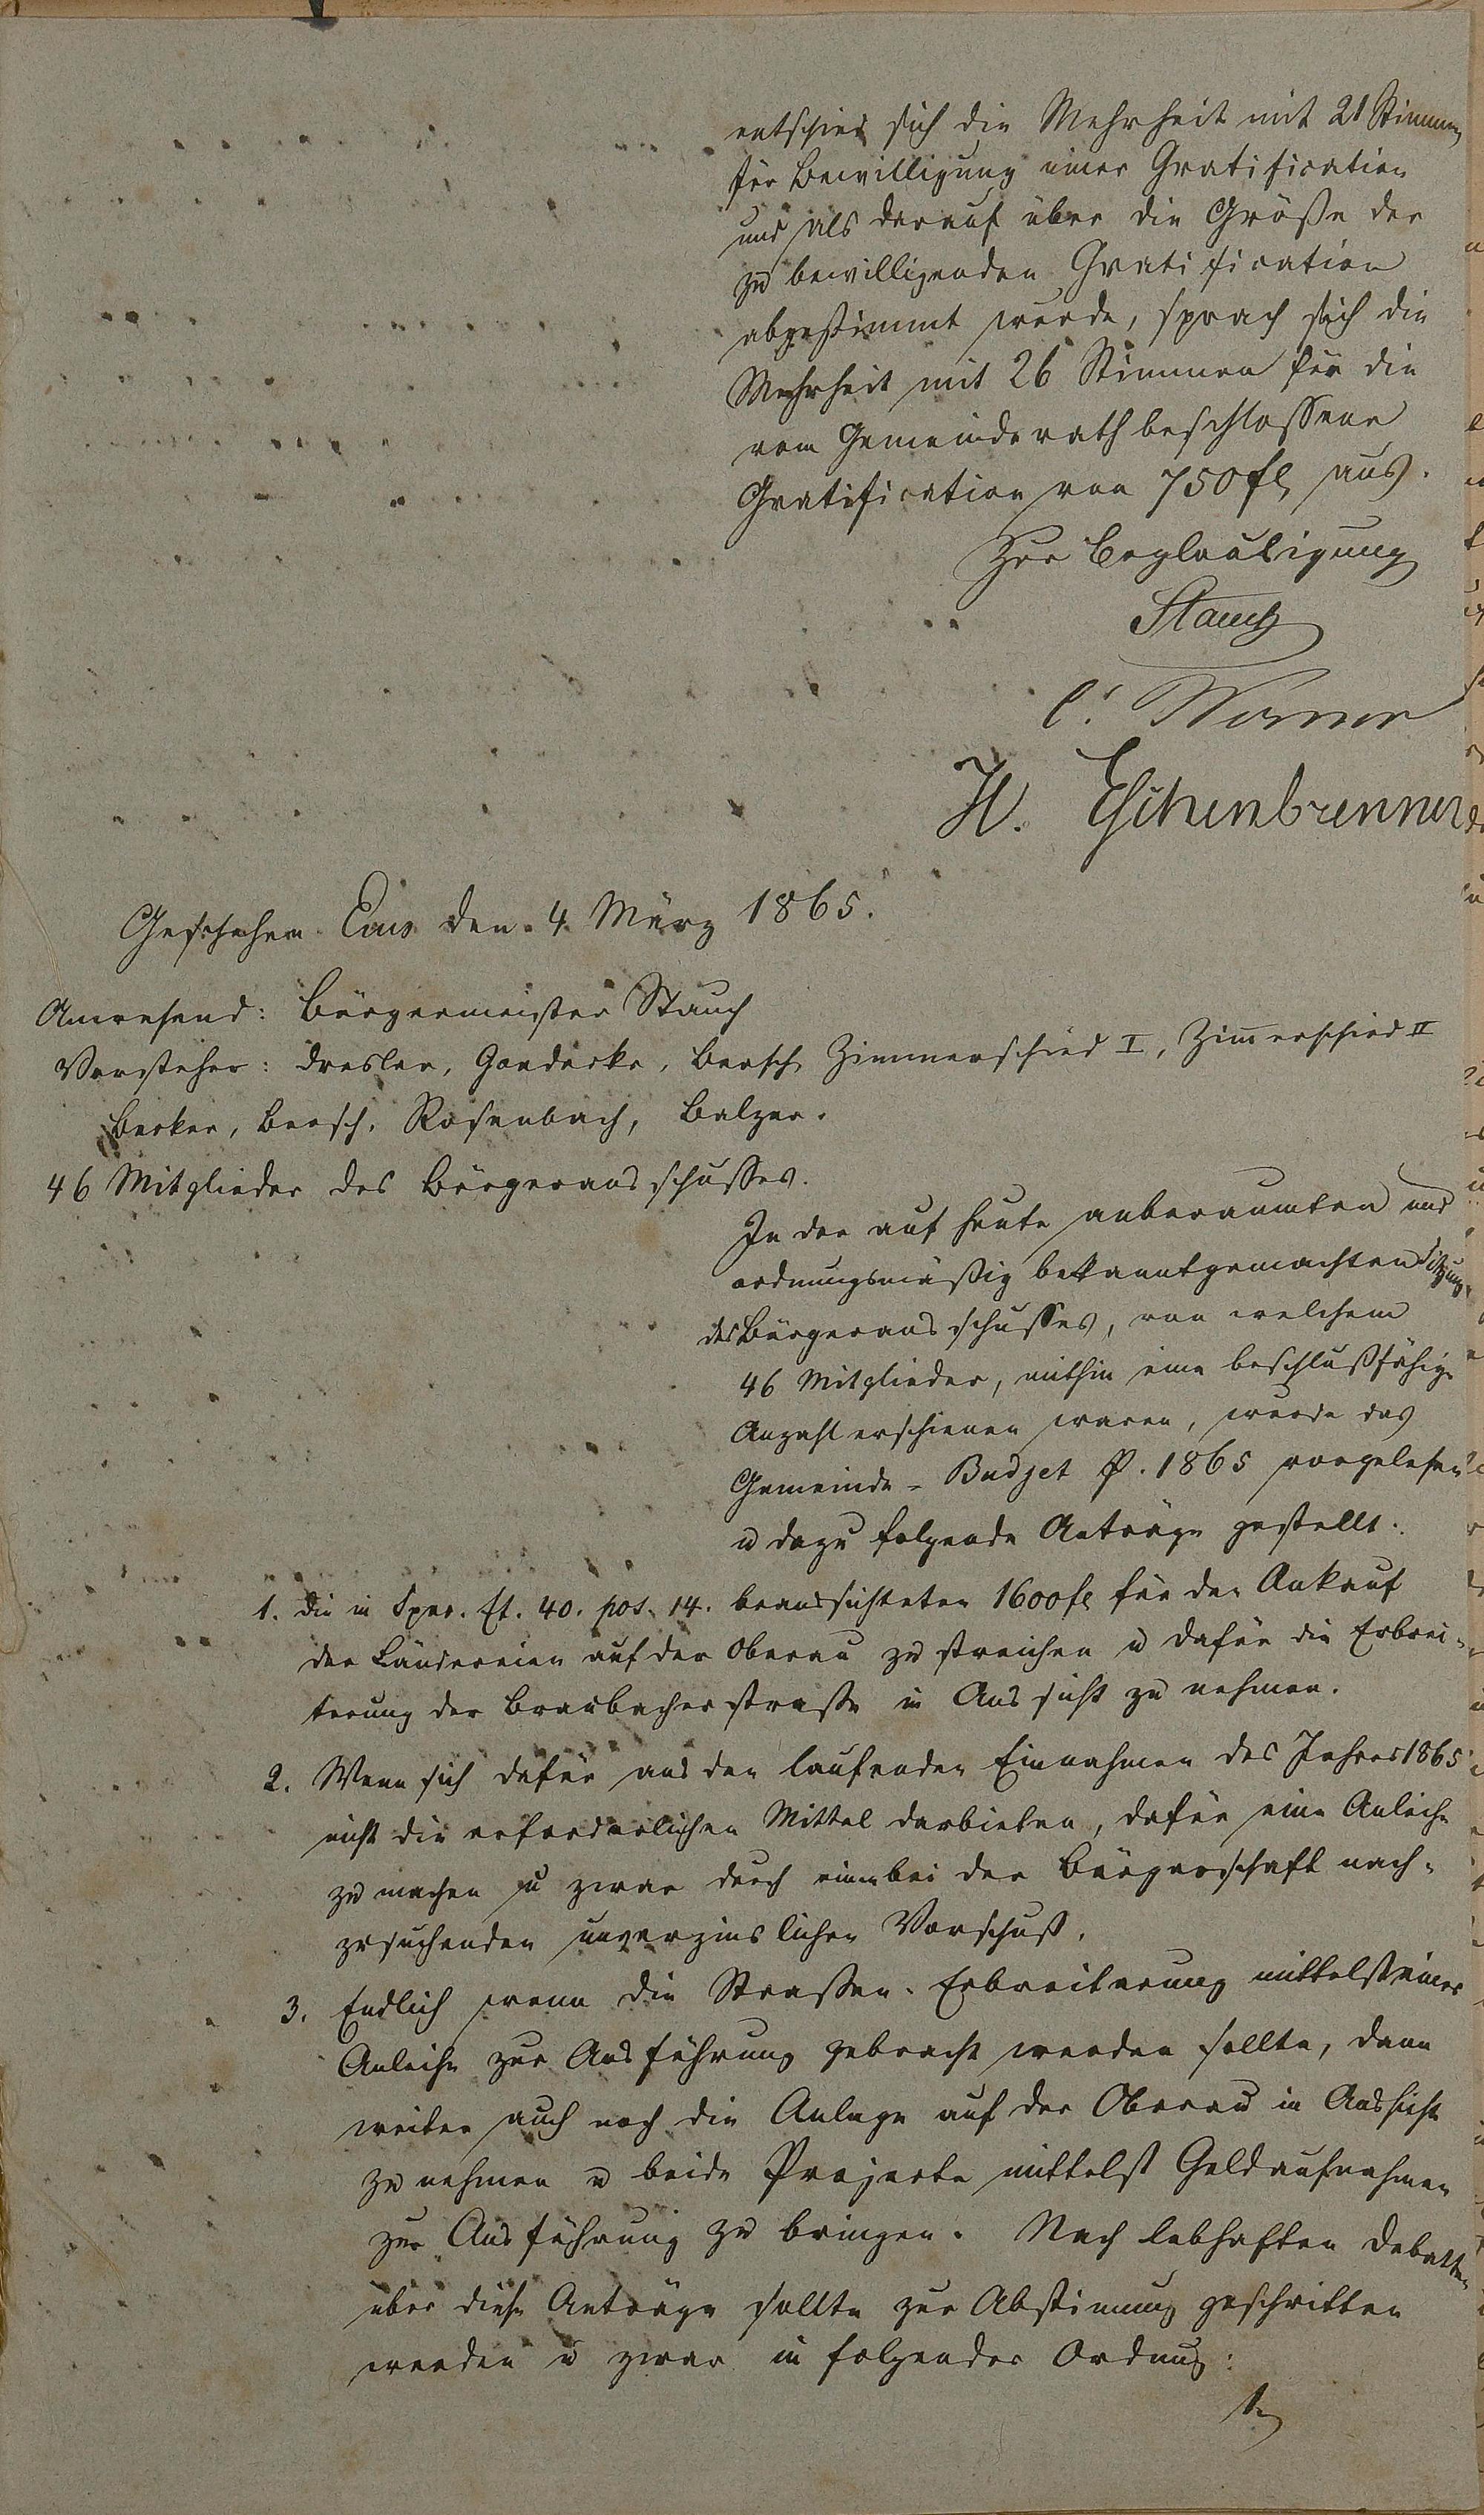 entschied sich die Mehrheit mit 21 Stimmen
für Bewilligung einer Gratification
und als darauf über die Größe der
zu bewilligenden Gratification
abgestimmt wurde, sprach sich die
Mehrheit mit 26 Stimmen für die
vom Gemeinderath beschlossene
Gratification von 750 fl aus.
Zur Beglaubigung
Stauch
C. Werner
H. Eschenbrenner
Geschehen Ems den 4 März 1865.
Anwesend: Bürgermeister Stauch
Vorsteher: Dresler, Goedecke, Bersch, Zimmerschied I, Zimerschied II
Becker, Bersch, Rosenbach, Balzer.
46 Mitglieder des Bürgerausschusses.
In der auf heute anberaumten und
ordnungsmäßig bekanntgemachten Sitzung
des Bürgerausschusses, von welchem
46 Mitglieder, mithin eine beschlußfähige
Anzahl erschienen waren, wurde das
Gemeinde-Budjet p. 1865 vorgelesen
u dazu folgende Anträge gestellt:
1. die in Tit. 40. pos. 14. beaussichteten 1600 fl für den Ankauf
der Ländereien auf der Oberau zu streichen u dafür die Erbrei-
terung der Braubacherstraße in Aussicht zu nehmen.
2. Wenn sich dafür aus den laufenden Einnahmen des Jahres 1865
nicht die erforderlichen Mittel darbieten, dafür eine Anleihe
zu machen u zwar durch einen bei der Bürgerschaft nach-
zusuchenden unverzinslichen Vorschuß.
3. Endlich wenn die Straßen-Erbreiterung mittelst einer
Anleihe zur Ausführung gebracht werden sollte, dann
weiter auch noch die Anlage auf der Oberau in Aussicht
zu nehmen u beide Projecte mittelst Geldaufnahmen
zur Ausführung zu bringen. Nach lebhaften Debatten
über diese Anträge sollte zur Abstimung geschritten
werden u zwar in folgender Ordnung: